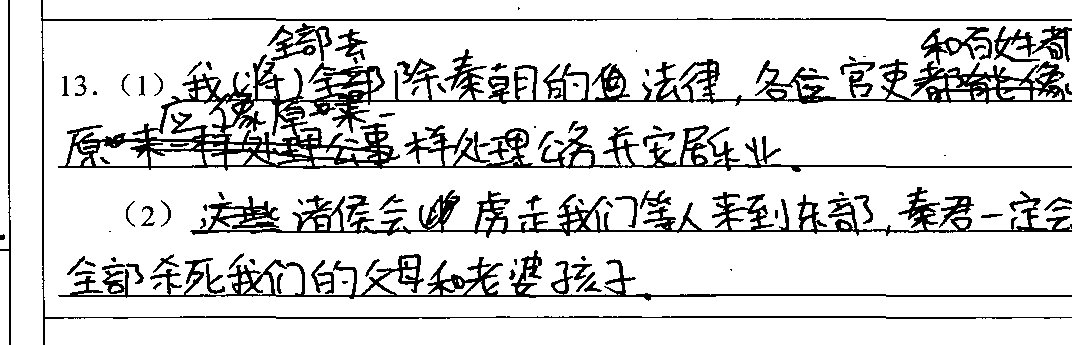 全部去 和百姓都
13.（1）我(将)全部除秦朝的法律，各位官吏都能像
应像原来一
原来一样处理公事样处理公务并安居乐业.
（2）这些诸侯会虏走我们等人来到东部，秦君一定会
全部杀死我们的父母和老婆孩子.